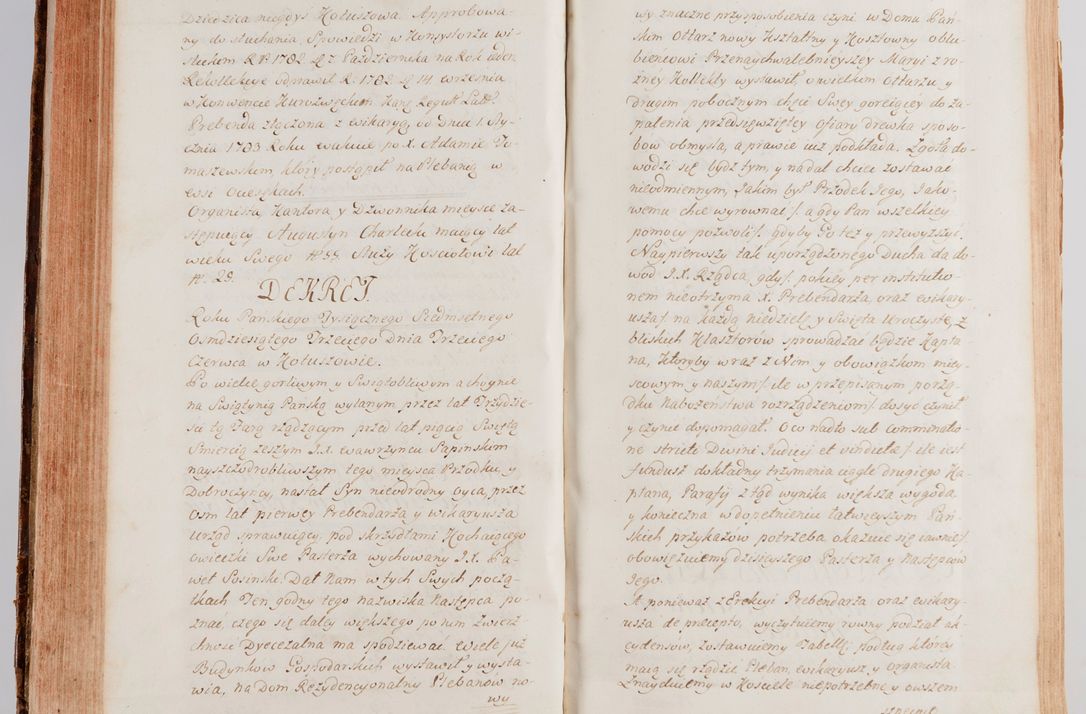 Dziedzica niegdyś Kotuszowa. Approbowa-
ny do słuchania Spowiedzi w Konsystorzu wi-
ślickim R. P. 1782 d. 7 Października na Rok ieden
Rekollekcye odprawił R. 1782 d. 14 września
w Konwencie Kurozwęckim Kano: Regul: Late:
Prebenda złączona z wikaryą od Dnia 1 Sty-
cznia 1783 Roku wakuie po X. Adamie To-
maszewskim, który postąpił na Plebanią w
wsi Ocieskach.
Organisty, Kantora, y Dzwonnika mieysce za-
stępuiący Augustyn Charlicki maiący lat
wieku Swego № 55. Służy Kosciołowi lat
№ 29.
DEKRET
Roku Pańskiego Tysiącznego Siedmsetnego
Osmdziesiątego Trzeciego Dnia Trzeciego
Czerwca w Kotuszowie.
Po wielce gorliwym y Swiątobliwym a hoynie
na Swiątynią Pańską wylanym przez lat Trzydzie-
ści tą Parą rządzącym przed lat pięcią Swiętą
Śmiercią zeszłym J.X. Wawrzyńcu Sapinskim
nayszczodrobliwszym tego mieysca Przodku, y
Dobroczyńcy, nastał Syn nieodrodny oyca, przez
Osm lat pierwey Prebendarza y wikaryusza
urząd sprawuiący, pod skrzydłami Kochaiącego
owieczki Swe Pasterza wychowany J.X. Pa-
weł Sosinski. Dał Nam w tych Swych począ-
tkach Ten godny tego nazwiska Następca po-
znać, czego się daley większego po nim zwierz-
chność Dyecezalna ma spodziewać. wiele już
Budynkow Gospodarskich wystawił y wysta-
wia, na Dom Rezydencyonalny Plebanow no-
wy
wy znaczne przysposobienia czyni w Domu Pań-
skim Ołtarz nowy Kształtny y Kosztowny oblu-
bienicowi Przenaychwalebnieyszey Maryi z ro-
żney Kollekty wystawił, o wielkim Ołtarzu y
drugim pobocznym chęci Swey goreiącey do za-
palenia przedsięwziętey ofiary drewka sposo-
bow obmyśla, a prawie iuż podkłada. Zgoła do-
wodzi się bydz tym, y nadal chcieć zostawać
nieodmiennym, Jakim był Przodek Jego, Jako-
wemu chce wyrownać /. a gdy Pan wszelkiey
pomocy pozwoli /. gdyby Go też y przewyższyć.
Naypierwszy tak uporządzonego Ducha da do-
wod J.X. Rządca, gdy /. pokiey per institutio-
nem nieotrzyma X. Prebendarza oraz wikary-
usza /. na każdą niedzielę y Swięta Uroczyste, z
bliskich Klasztorow sprowadzać będzie Kapła-
na, Któryby wraz z Nim y obowiązkom miey-
scowym y naszym /. ile w przepisanym porzą-
dku Nabożeństwa rozrządzeniom /. dosyć czynił
y czynić dopomagał. O co nadto sub comminatio-
ne stricte Divini Judicij et vindictæ /. ile iest
fundusz dokładny trzymania ciągle drugiego Ka-
płana, Parafij ztąd wynika większa wygoda
y konieczna w dopełnieniu łatwieyszym Pań-
skich przykazow potrzeba okazuie się iawnie /.
obowięzuiemy dzisieyszego Pasterza y Następcow
Jego.
A ponieważ z Erekcyi Prebendarza oraz wikary-
usza de præcepto, wyczytuiemy rowny podział ak-
cydensow, zostawuiemy Tabellę, podług ktorey
maią się rządzić Pleban, wikaryusz y organista.
Znayduiemy w Kosciele niepotrzebne y owszem
szpecące